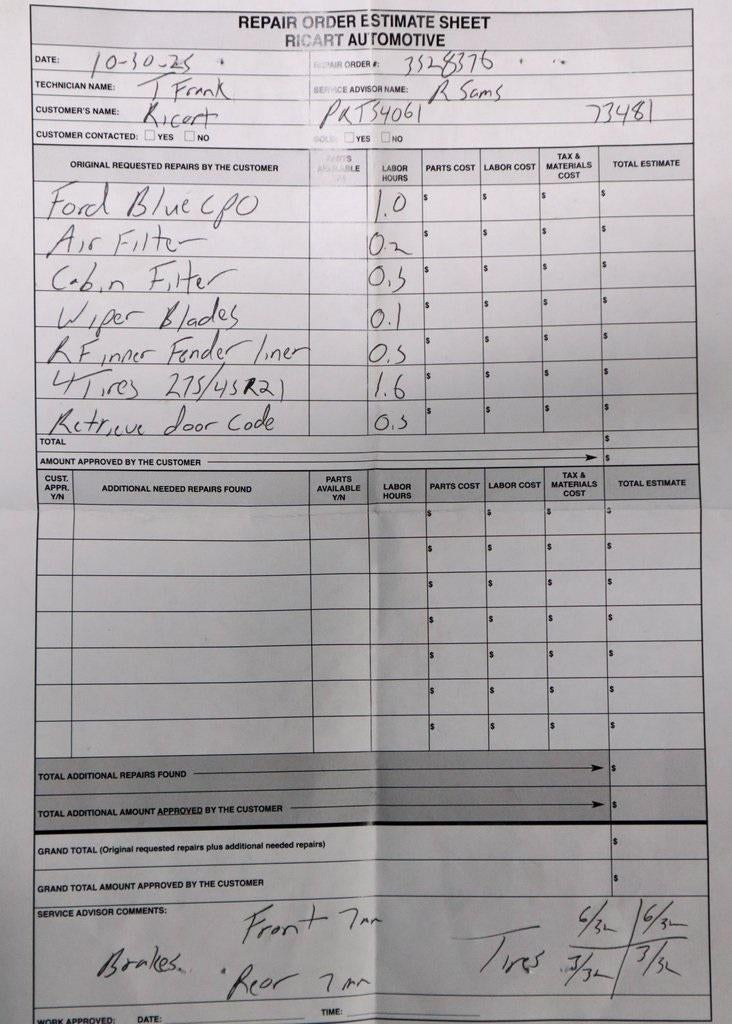 REPAIR ORDER ESTIMATE SHEET
RICART AUTOMOTIVE
DATE: 10-30-25 REPAIR ORDER #: 3528376
TECHNICIAN NAME: T Frank SERVICE ADVISOR NAME: R Sams
CUSTOMER'S NAME: Ricart PRT54061 73481
CUSTOMER CONTACTED: YES NO SOLD: YES NO
ORIGINAL REQUESTED REPAIRS BY THE CUSTOMER PARTS AVAILABLE Y/N LABOR HOURS PARTS COST LABOR COST TAX & MATERIALS COST TOTAL ESTIMATE
Ford Blue CPO 1.0 $ $ $ $
Air Filter 0.2 $ $ $ $
Cabin Filter 0.3 $ $ $ $
Wiper Blades 0.1 $ $ $ $
RF inner Fender liner 0.5 $ $ $ $
4 Tires 275/45R21 1.6 $ $ $ $
Retrieve door code 0.3 $ $ $ $
TOTAL $
AMOUNT APPROVED BY THE CUSTOMER $
CUST. APPR. Y/N ADDITIONAL NEEDED REPAIRS FOUND PARTS AVAILABLE Y/N LABOR HOURS PARTS COST LABOR COST TAX & MATERIALS COST TOTAL ESTIMATE
$ $ $ $
$ $ $ $
$ $ $ $
$ $ $ $
$ $ $ $
$ $ $ $
$ $ $ $
TOTAL ADDITIONAL REPAIRS FOUND $
TOTAL ADDITIONAL AMOUNT APPROVED BY THE CUSTOMER $
GRAND TOTAL (Original requested repairs plus additional needed repairs) $
GRAND TOTAL AMOUNT APPROVED BY THE CUSTOMER $
SERVICE ADVISOR COMMENTS:
Front 7mm 6/32 6/32
Brakes Tires
Rear 7mm 3/32 3/32
WORK APPROVED: DATE: TIME: